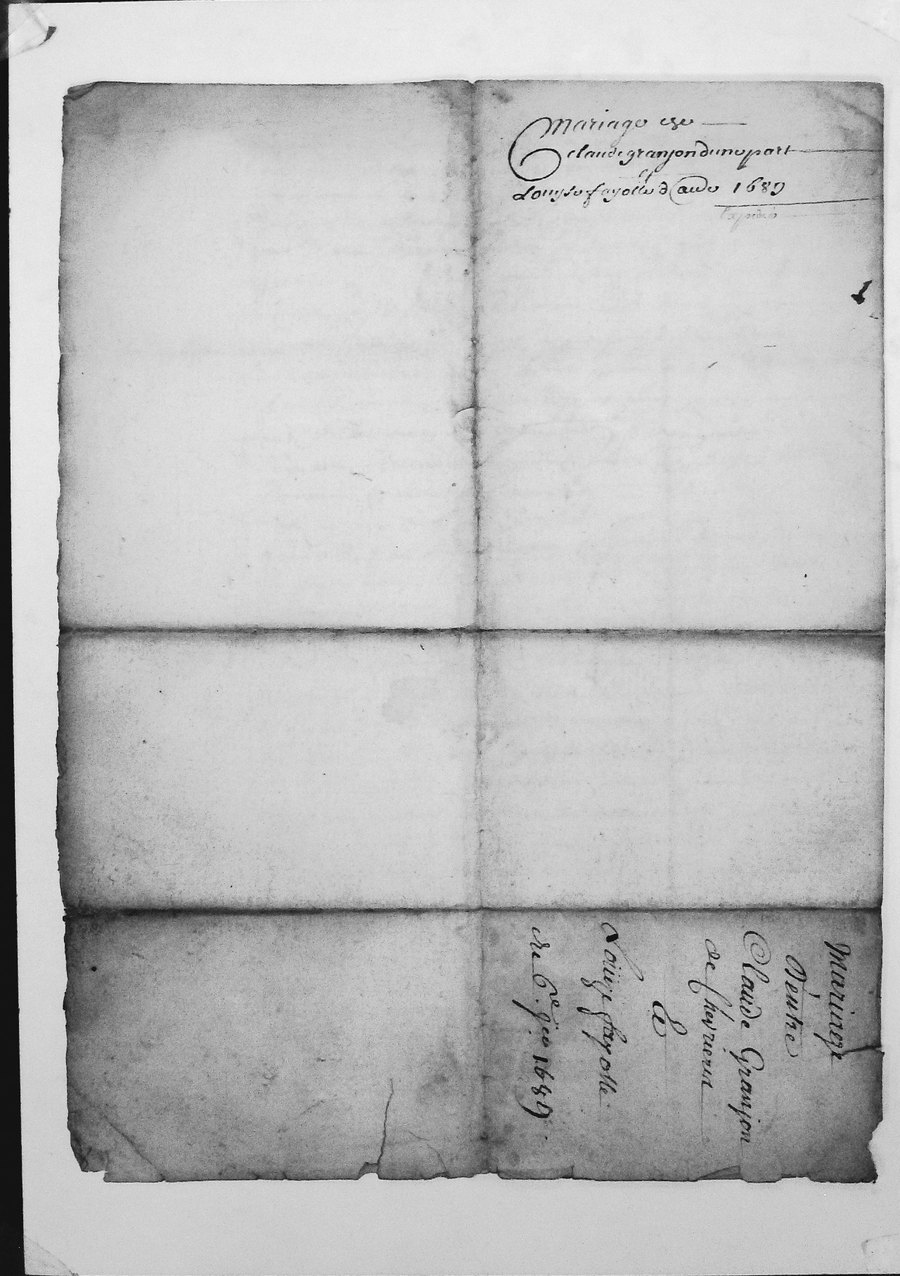 Mariage de
claude granjon d'une part
et
Louyse fayolle d'autre 1689
Expédié
Mariage
D'entre
Claude Granjon
de Chevrieres
&
Loüize fayolle
du 6e. 1689